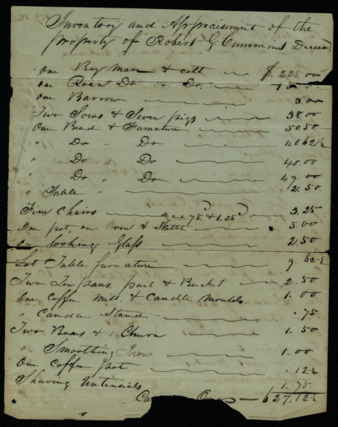 Inventory and Appraisement of the
property of Robert G Cummins Deceased
One Bay Mare & colt $225.00
One Roan Do " Do
One Barrow 3.00
Two Sows & Seven pigs 38.00
One Bead & Furnature 50.50
" Do " Do 40.62½
" Do " Do 40.00
" Do " Do 49.00
" Table " 2.50
Five Chairs 3.25
One pot, one Oven & Skillet 5.00
One looking Glass 2.50
Lot Table furnature 9.62½
Two Tin pans pail & Bucket 2.50
One Coffee Mill & Candle Moulds 1.00
" Candle Stand .75
Two Beaus & Churn 1.50
" Smoothing Irons 1.00
One Coffee pot .12½
Shaving Untensials 1.75
Over 627.12½